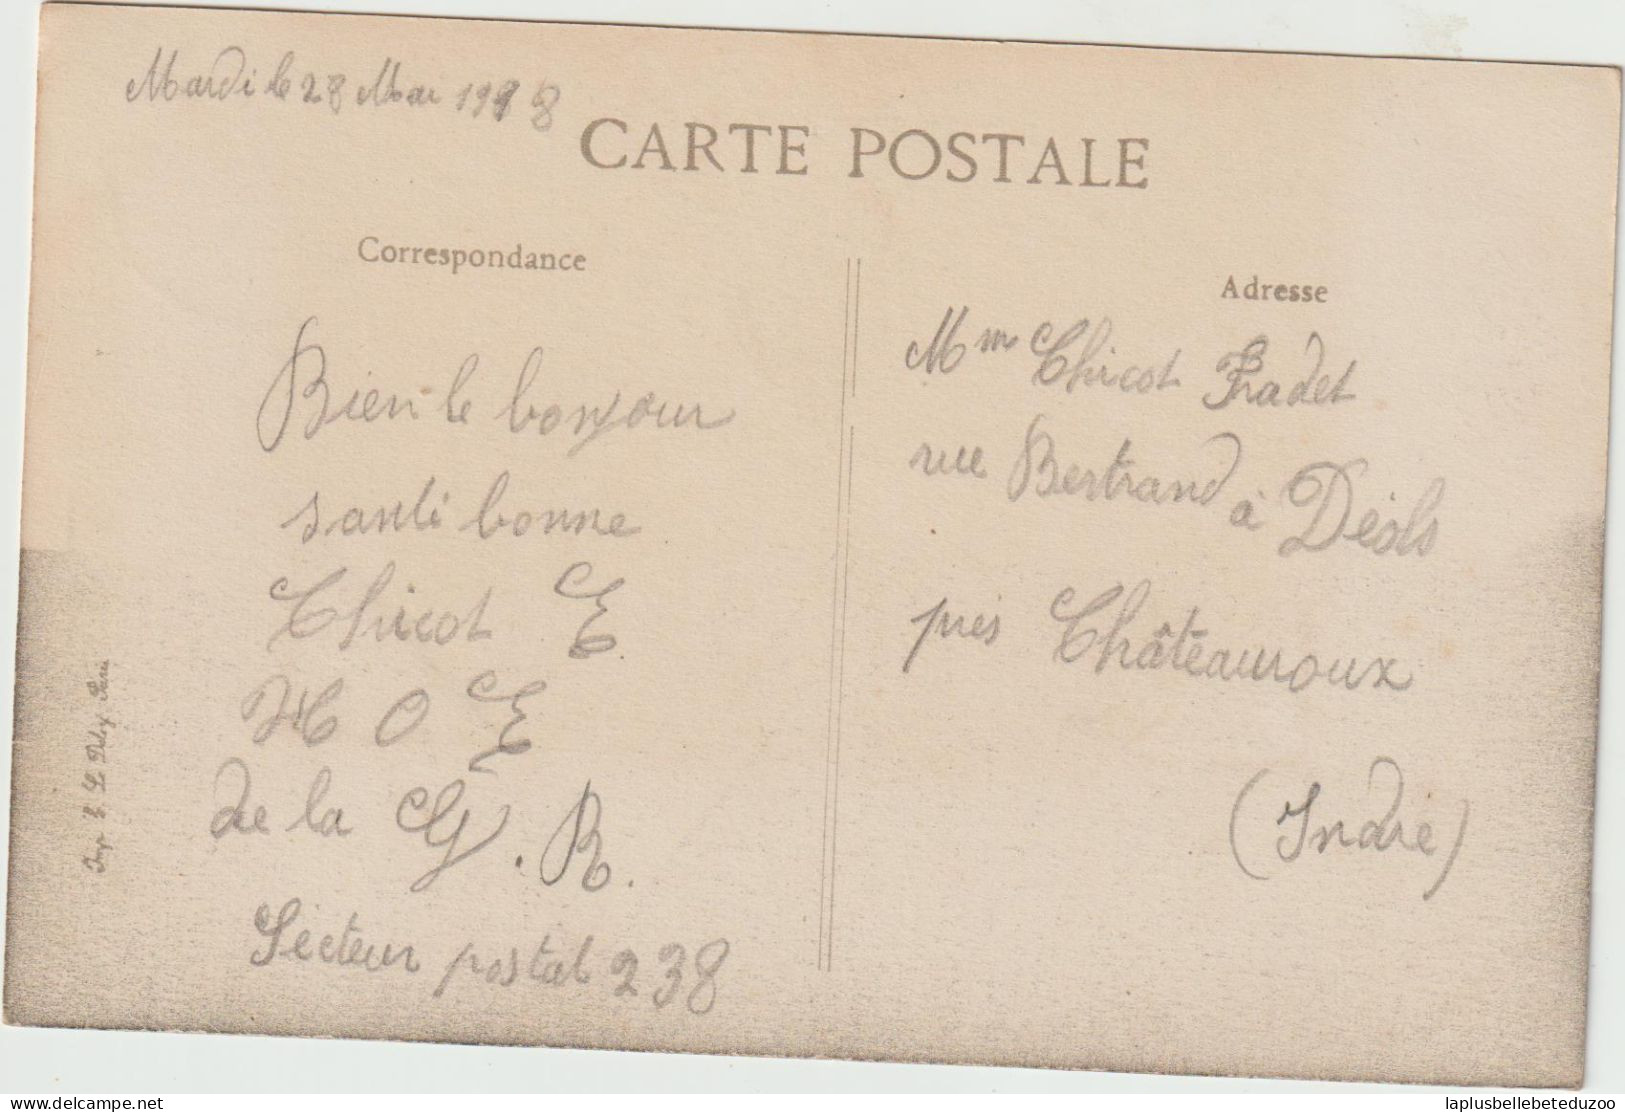 Mardi le 28 Mai 1918
CARTE POSTALE
Correspondance
Bien le bonjour
santé bonne
Chicot E
H O E
de la G. R.
Secteur postal 238
Adresse
Mme Chicot Fradet
rue Bertrand à Déols
près Châteauroux
(Indre)
Imp. E. Le Deley, Paris
laplusbellebeteduzoo